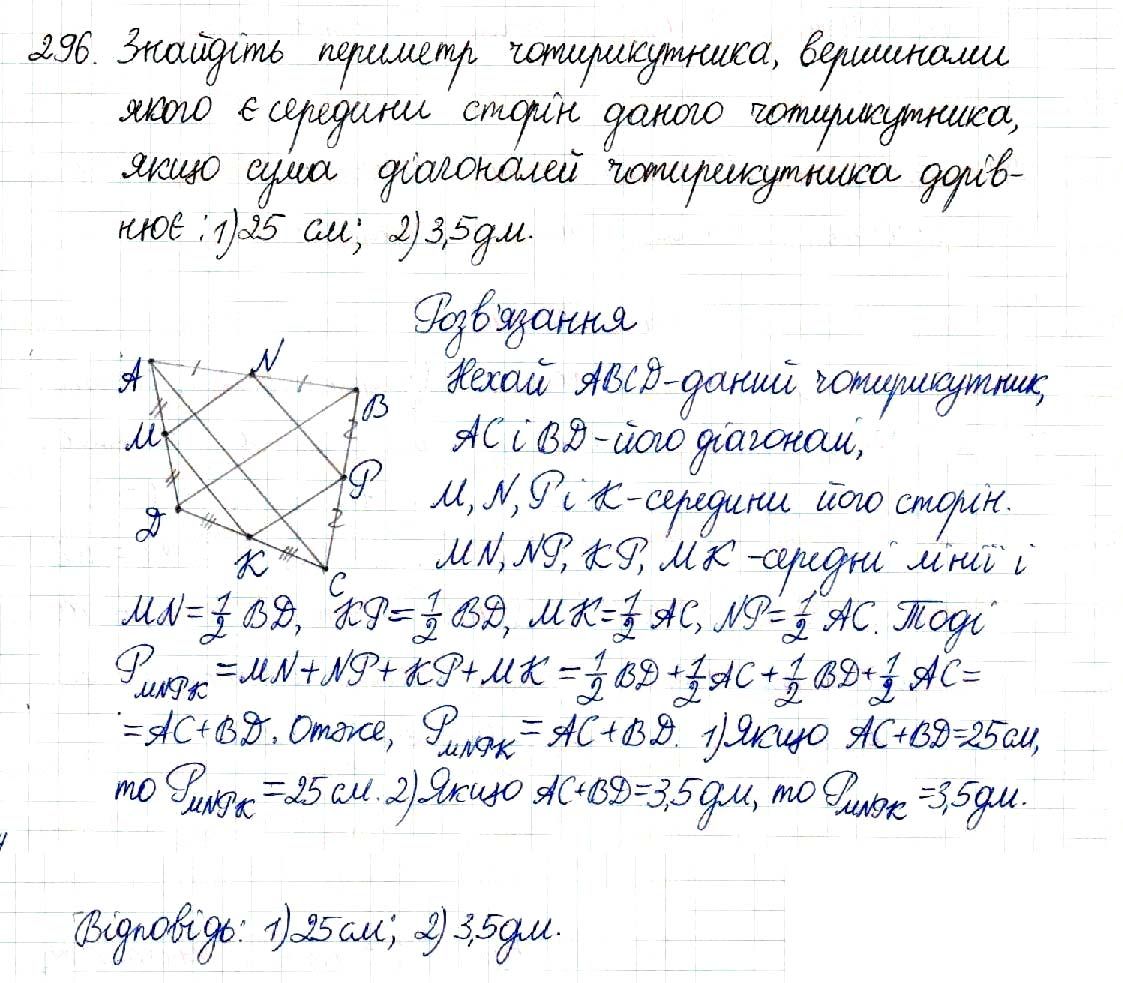 296. Знайдіть периметр чотирикутника, вершинами
якого є середини сторін даного чотирикутника,
якщо сума діагоналей чотирикутника дорів-
нює: 1) 25 см; 2) 3,5 дм.
Розв'язання
A N B M P D K C
Нехай ABCD - даний чотирикутник,
AC і BD - його діагоналі,
M, N, P і K - середини його сторін.
MN, NP, KP, MK - середні лінії і
MN = 1/2 BD, KP = 1/2 BD, MK = 1/2 AC, NP = 1/2 AC. Тоді
P_MNPK = MN + NP + KP + MK = 1/2 BD + 1/2 AC + 1/2 BD + 1/2 AC =
= AC + BD. Отже, P_MNPK = AC + BD. 1) Якщо AC + BD = 25 см,
то P_MNPK = 25 см. 2) Якщо AC + BD = 3,5 дм, то P_MNPK = 3,5 дм.
Відповідь: 1) 25 см; 2) 3,5 дм.